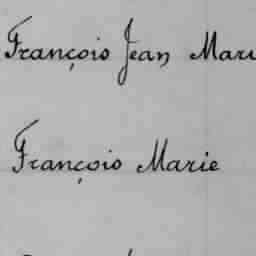 François Jean Mari
François Marie